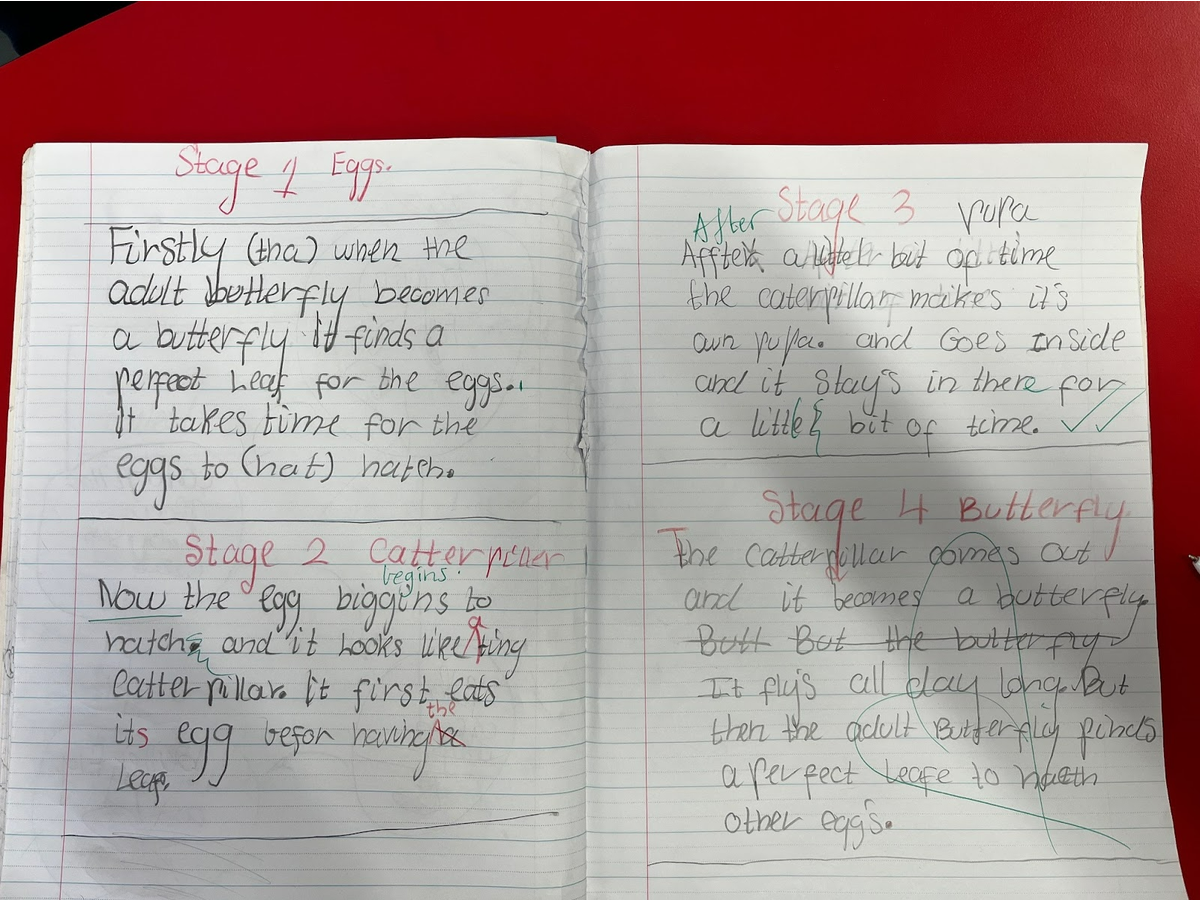 Stage 1 Eggs.
Firstly (tha) when the
adult butterfly becomes
a butterfly it finds a
perfect Leaf for the eggs.
It takes time for the
eggs to (hat) hatch.
Stage 2 Catterpiller
begins
Now the egg biggins to
hatch and it Looks like a tiny
Catterpillar. It first eats
the
its egg befor having
Leaf.
Stage 3 Pupa
After
Affter a bit of time
the caterpillar makes it's
own pupa. and Goes Inside
and it Stay's in there for
a little bit of time.
Stage 4 Butterfly
The Catterpillar comes out
and it becomes a butterfly
Butt But the butterfly
It fly's all day long. But
then the adult Butterfly finds
a perfect Leafe to
other eggs.